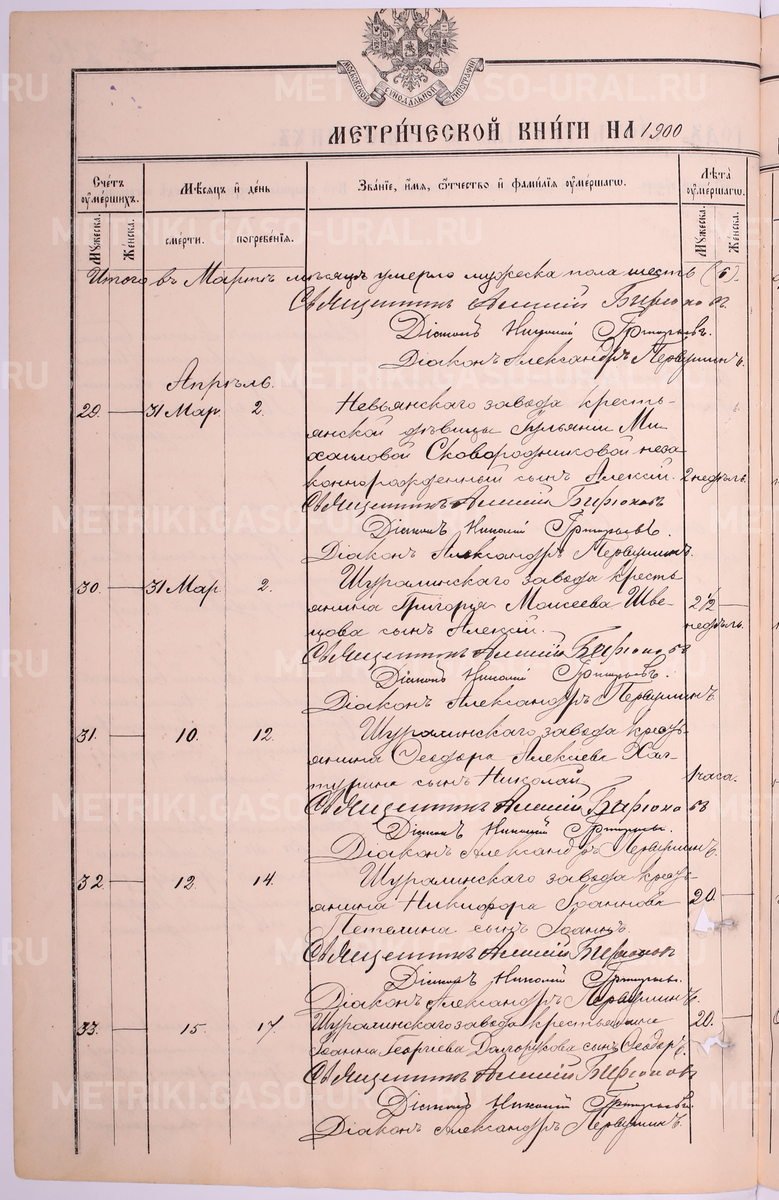 МОСКОВСКОЙ СѴНОДАЛЬНОЙ ТИПОГРАФІИ
МЕТРИ́ЧЕСКОЙ КНИ́ГИ НА 1900
Сче́тъ ᲂу҆ме́ршихъ.
Мѣ́сяцъ и҆ де́нь
Зва́нїе, и҆́мѧ, ѻ҆́тчество и҆ фамилїѧ ᲂу҆ме́ршагѡ.
Лѣ̀та ᲂу҆ме́ршагѡ.
Мꙋ́жеска.
Же́нска.
сме́рти.
погребе́нїѧ.
Мꙋ́жеска.
Же́нска.
Итого въ Мартѣ мѣсяцѣ умерло мужеска пола шесть (6).
Священникъ Алексій Бирюковъ
Діаконъ Николай Григорьевъ.
Діаконъ Александръ Первушинъ.
Апрѣль.
29. — 31 Мар. 2. Невьянскаго завода кресть-
янской дѣвицы Іуліаніи Ми-
хаиловой Сковородниковой неза
коннорожденный сынъ Алексій. 2 недѣль.
Священникъ Алексій Бирюковъ
Діаконъ Николай Григорьевъ.
Діаконъ Александръ Первушинъ.
30. — 31 Мар. 2. Шуралинскаго завода кресть
янина Григорія Моисеева Шве-
цова сынъ Алексій. 2 1/2 — недѣль.
Священникъ Алексій Бирюковъ
Діаконъ Николай Григорьевъ.
Діаконъ Александръ Первушинъ.
31. — 10. 12. Шуралинскаго завода кресть-
янина Ѳеодора Алексіева Хал-
турина сынъ Николай 1 часа.
Священникъ Алексій Бирюковъ
Діаконъ Николай Григорьевъ.
Діаконъ Александръ Первушинъ.
32. — 12. 14. Шуралинскаго завода кресть-
янина Никифора Іоаннова 20. —
Петелина сынъ Іоаннъ.
Священникъ Алексій Бирюковъ
Діаконъ Николай Григорьевъ.
Діаконъ Александръ Первушинъ.
33. — 15. 17. Шуралинскаго завода крестьянина 20. —
Іоанна Георгіева Долгорукова сынъ Ѳеодоръ.
Священникъ Алексій Бирюковъ
Діаконъ Николай Григорьевъ.
Діаконъ Александръ Первушинъ.
METRIKI.GASO-URAL.RU